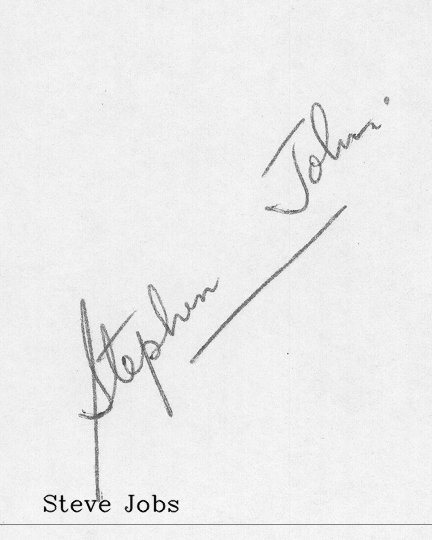 Stephen John.
Steve Jobs